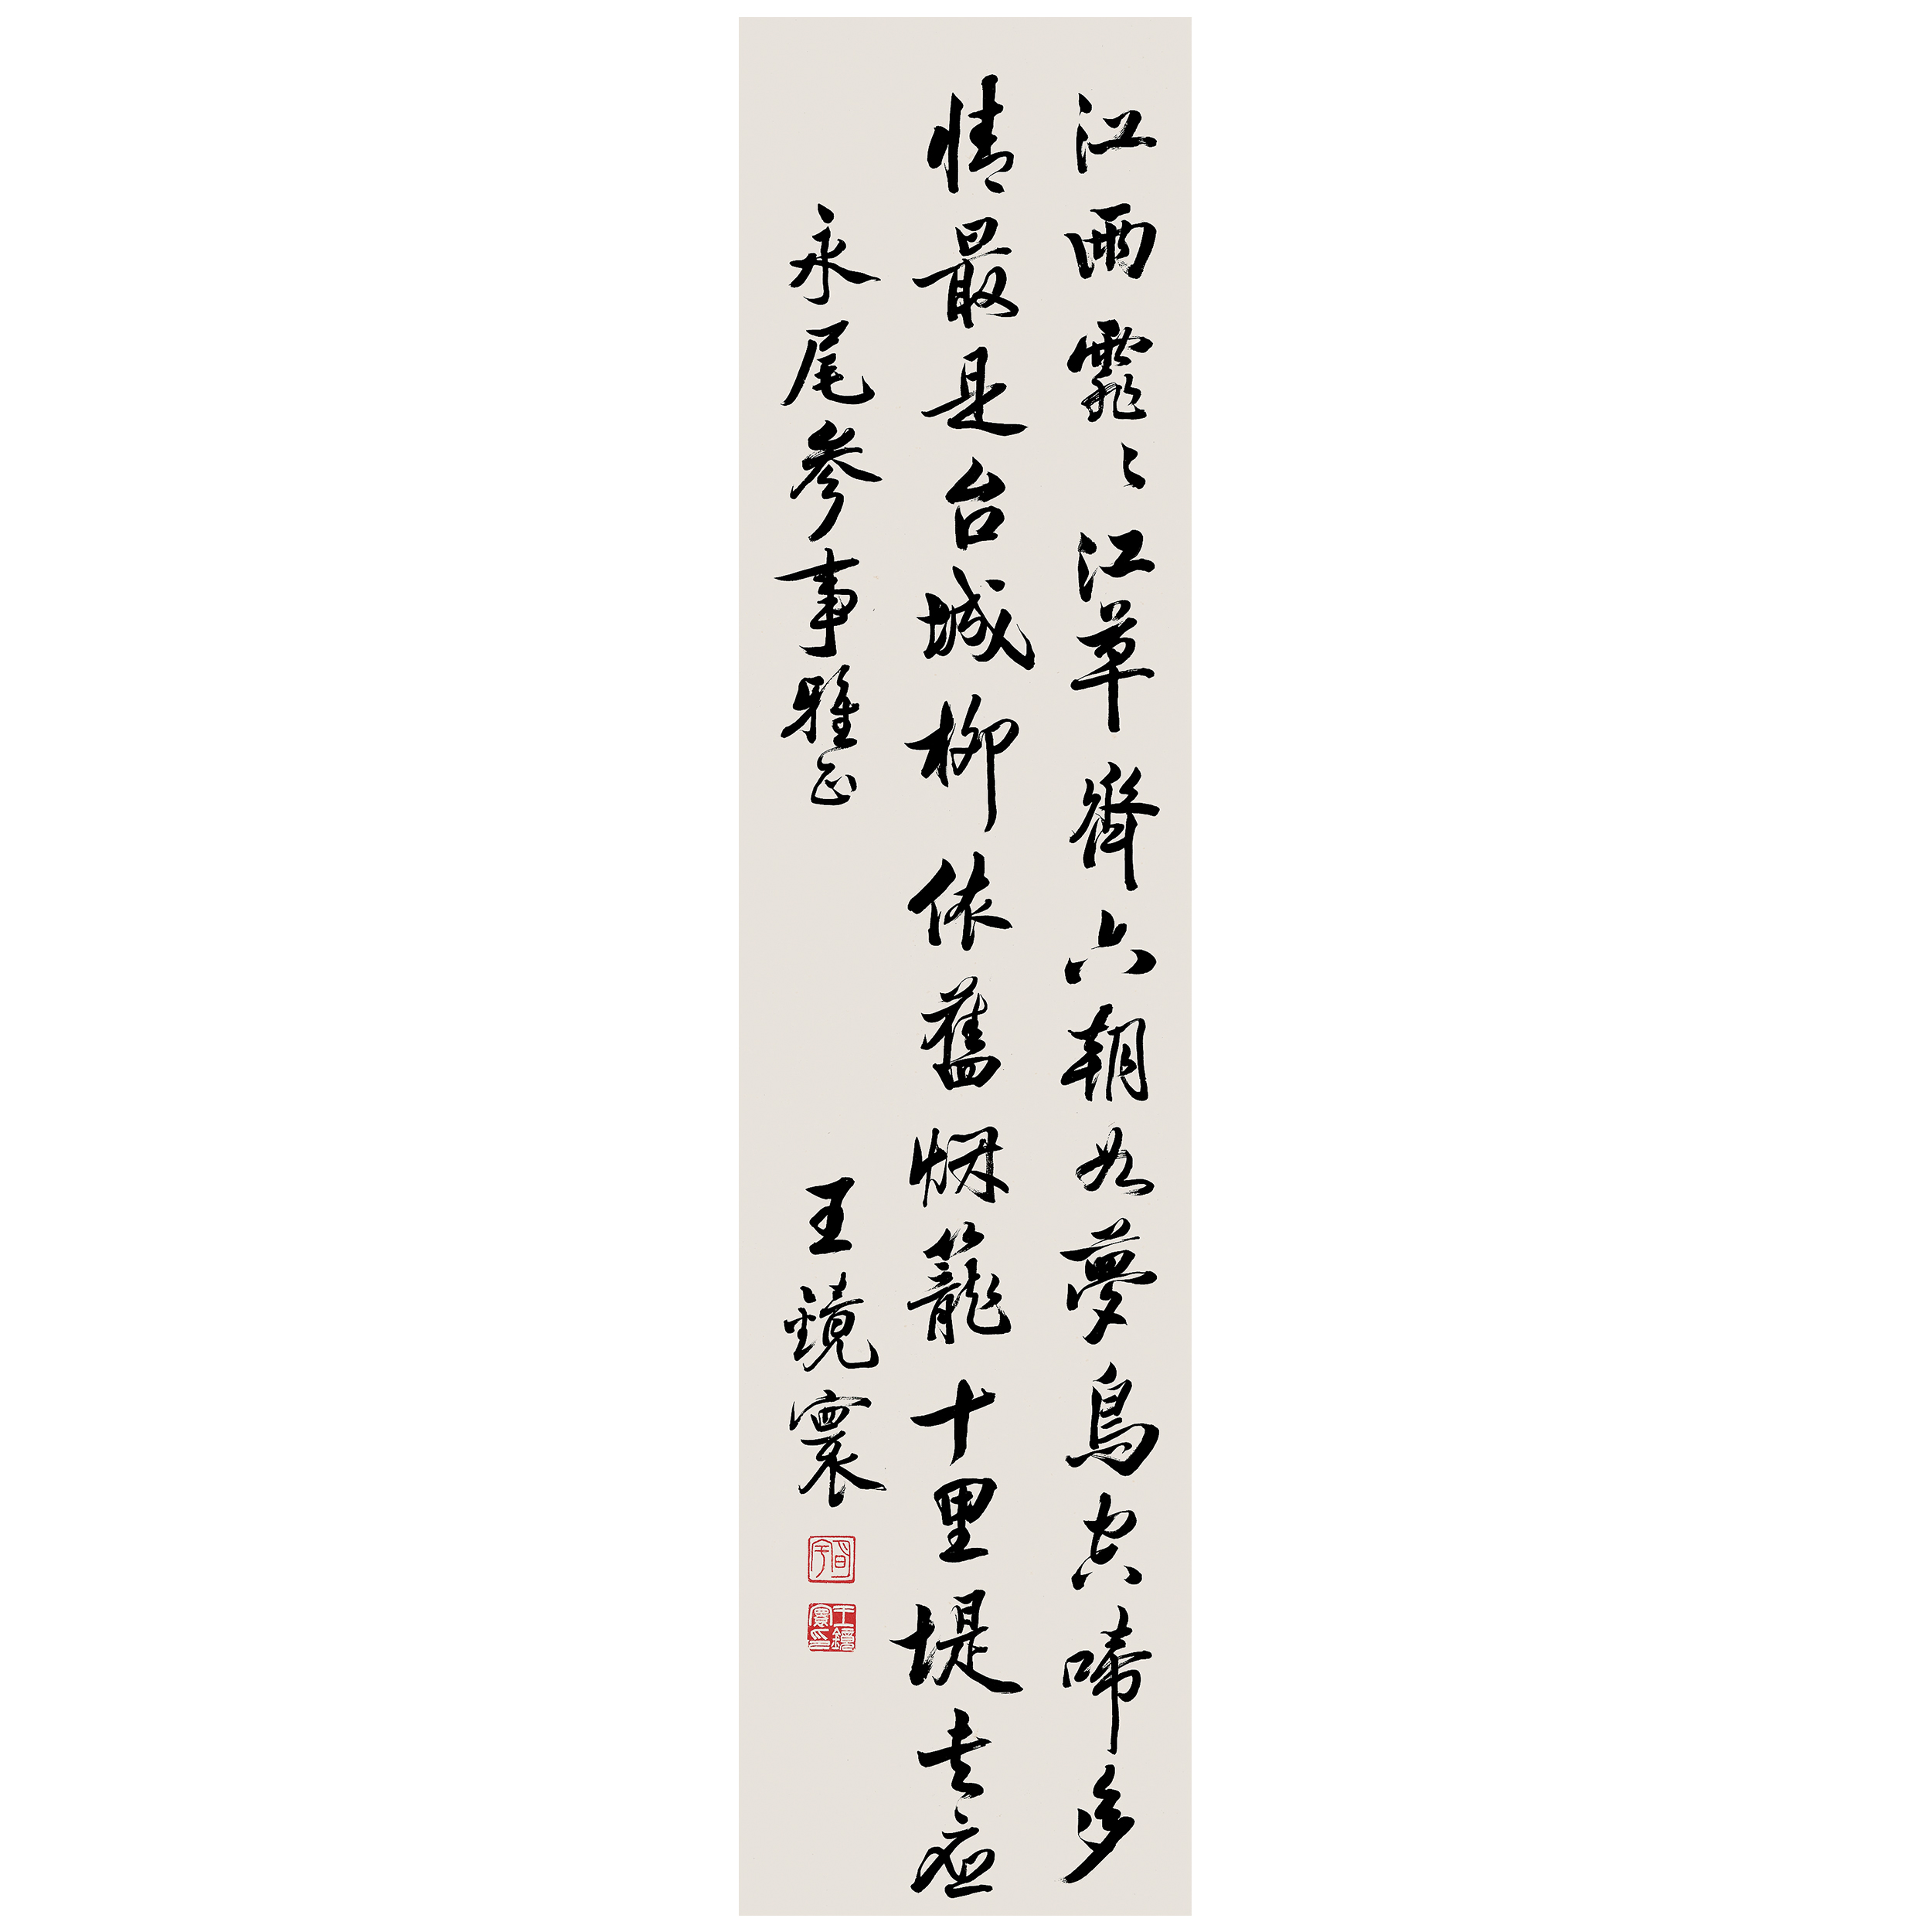 江雨霏〻江草齊六朝如夢鳥空啼多
情最是台城柳依舊烟籠十里堤書應
永尾參事雅正
王鏡寰
王鏡寰印